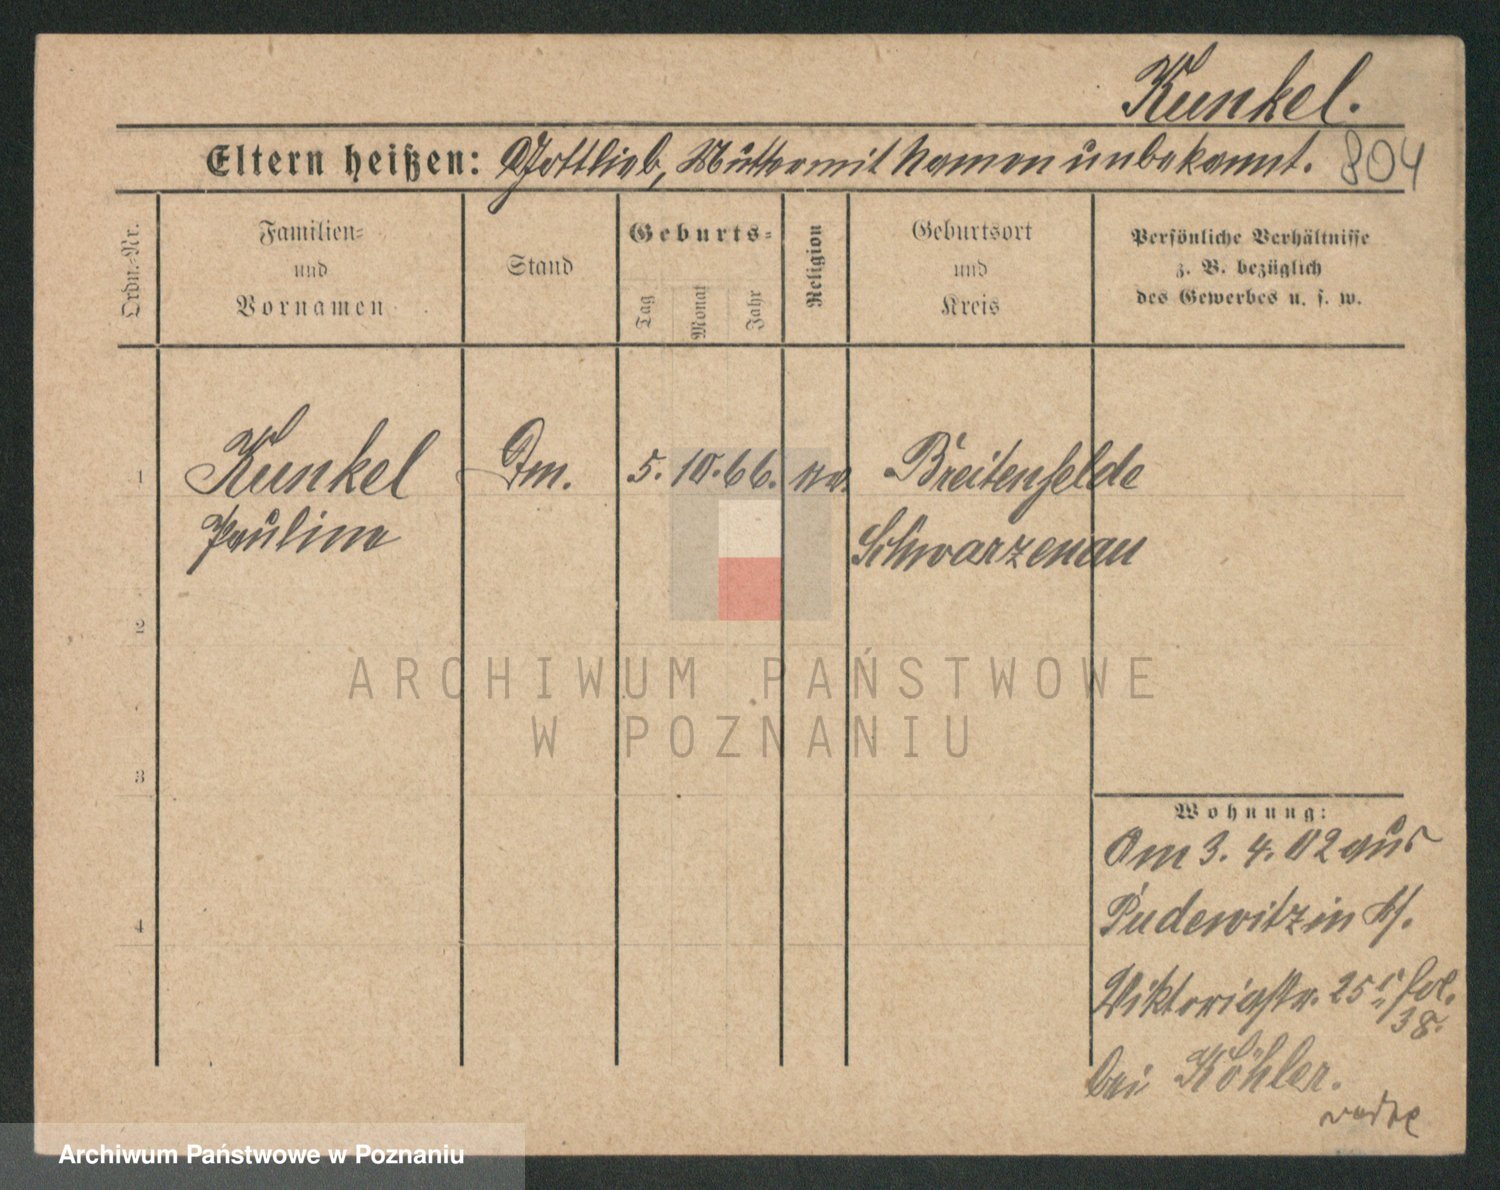 Kunkel.
Eltern heißen: Gottlieb, Muttermit Namen unbekannt. 804
Ordn.-Nr.
Familien- und Vornamen
Stand
Geburts-
Tag
Monat
Jahr
Religion
Geburtsort und Kreis
Persönliche Verhältnisse
z. B. bezüglich
des Gewerbes u. s. w.
1 Kunkel 5. 10. 66. Breitenfelde
Pauline Schwarzenau
2
3
4
Wohnung:
Am 3. 4. 02 aus
Pudewitz in
Viktoriastr. 25
38.
bei Köhler.
ARCHIWUM PAŃSTWOWE
W POZNANIU
Archiwum Państwowe w Poznaniu